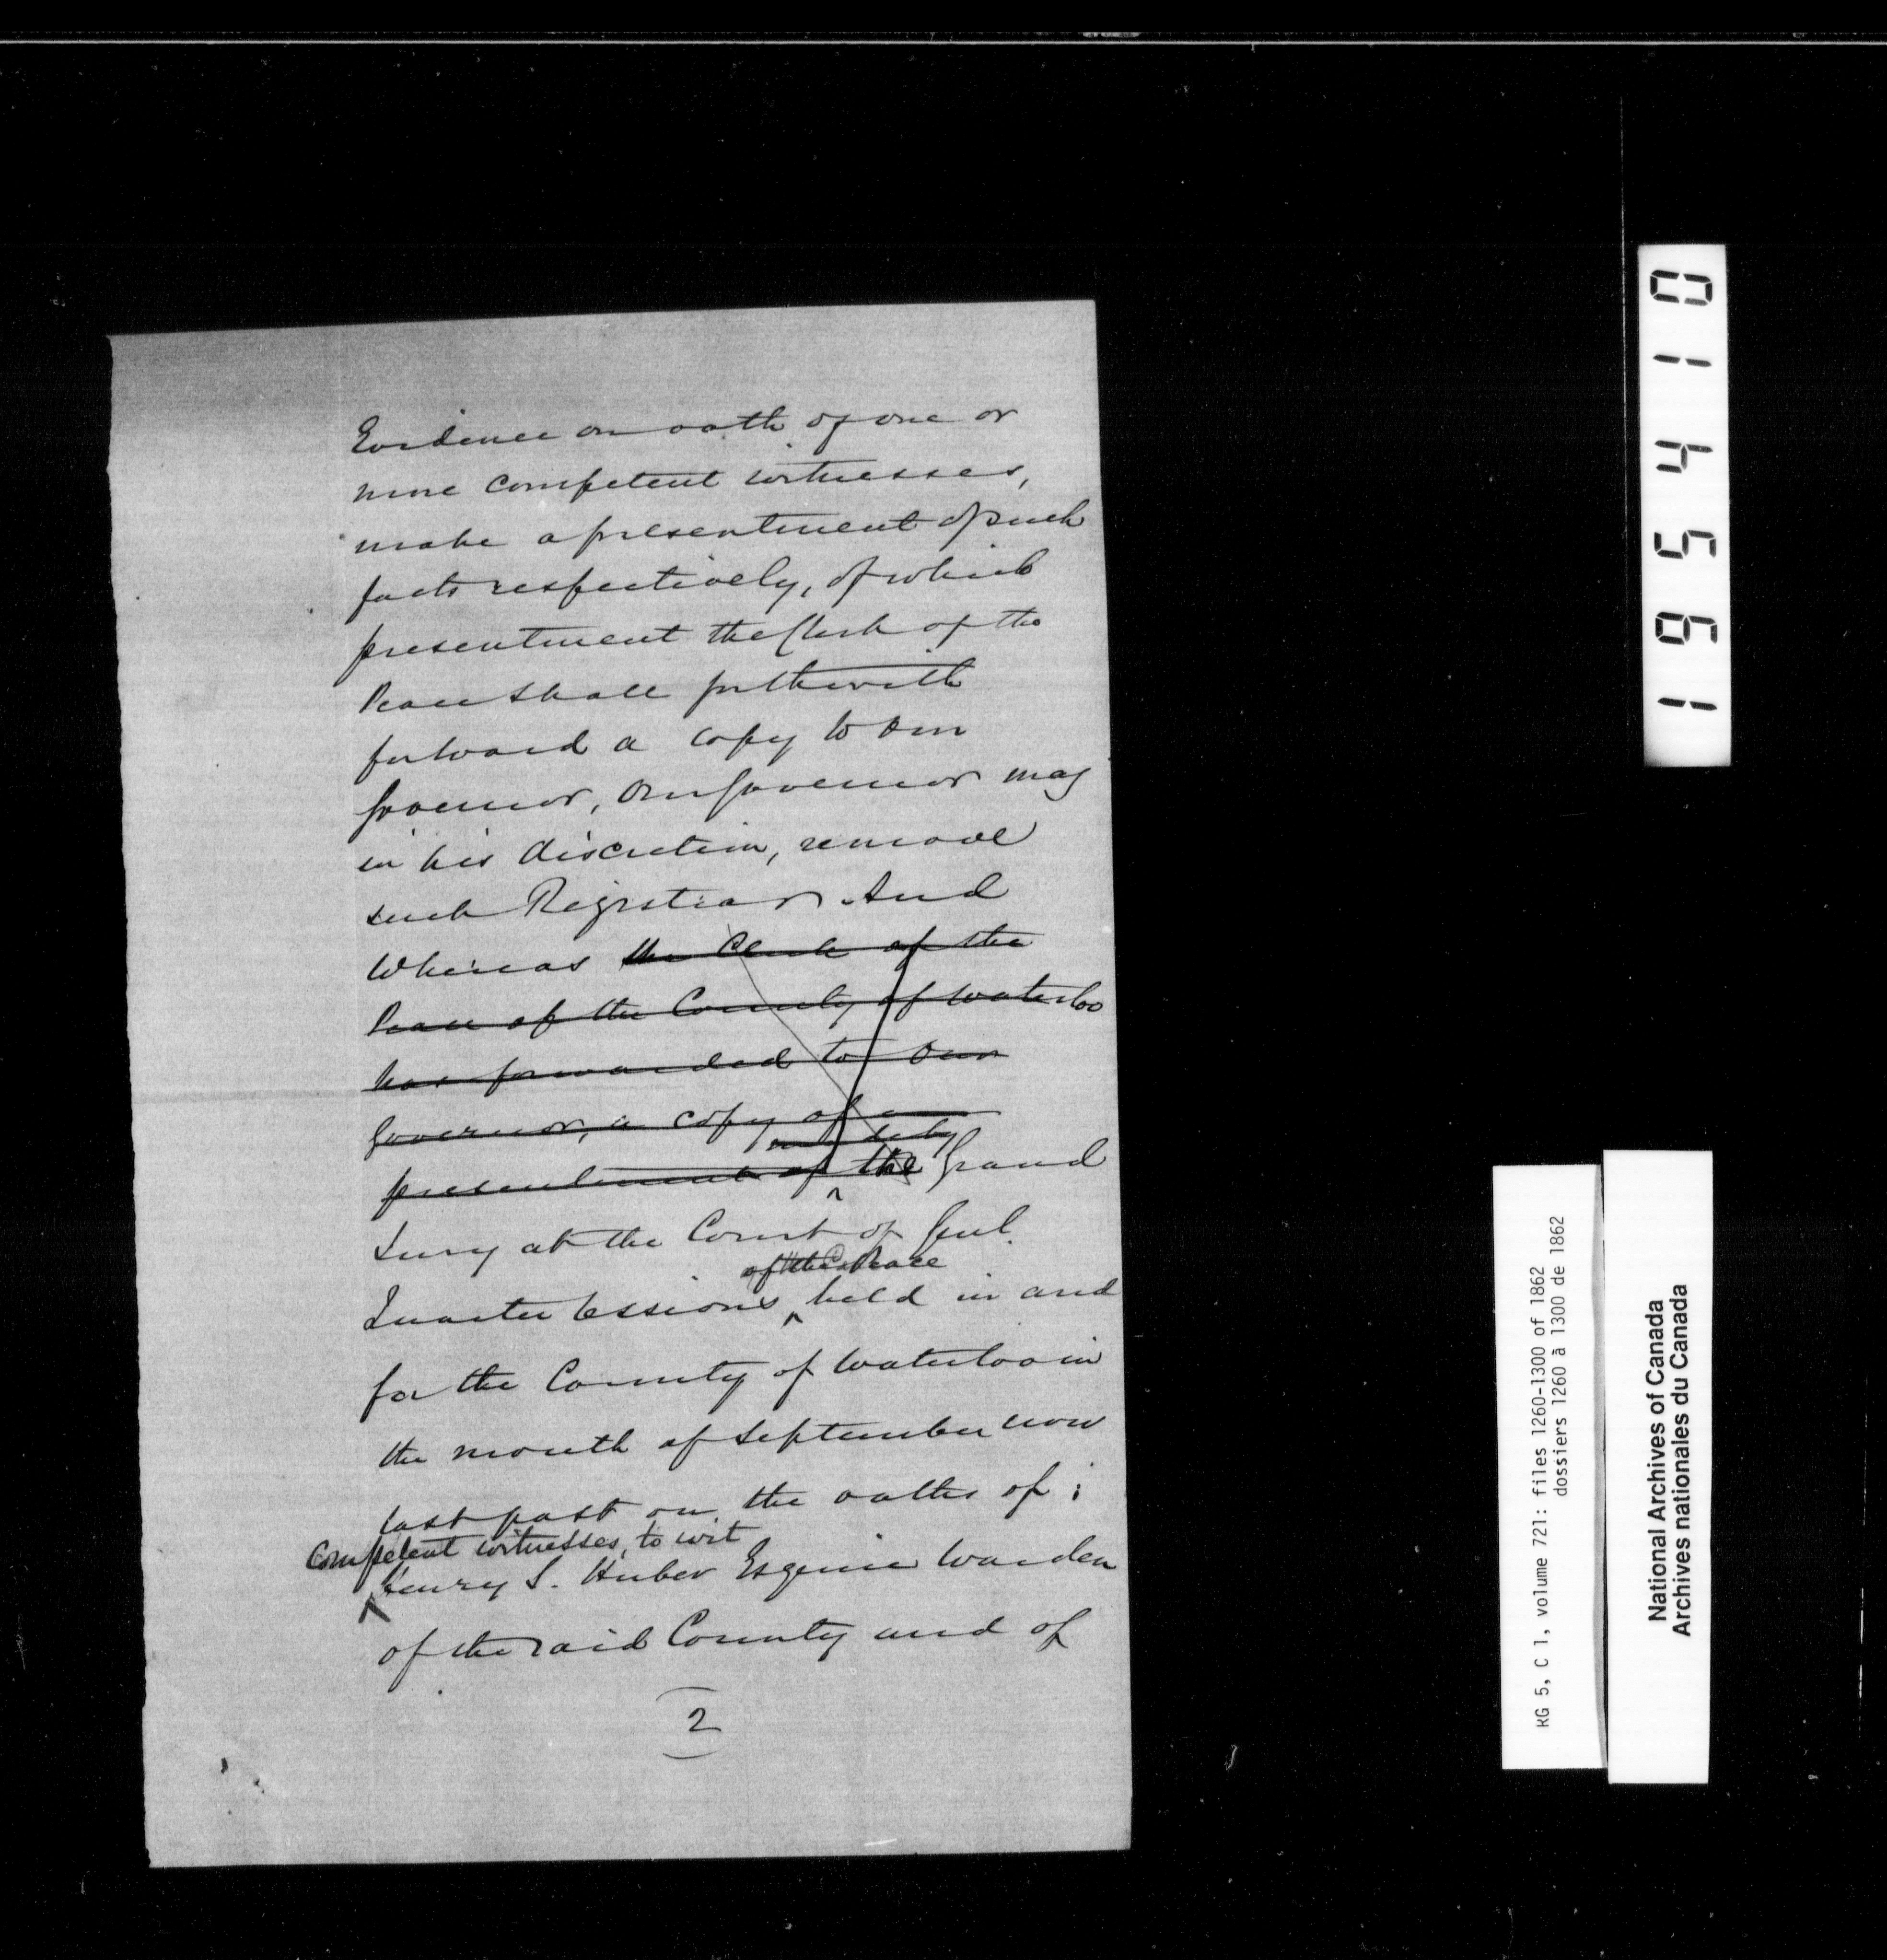 Evidence on oath of one or
more competent witnesses,
make a presentment of such
facts respectively, of which
presentment the Clerk of the
Peace shall forthwith
forward a copy to Our
Governor, Our Governor may
in his discretion, remove
such Registrar And
Whereas the Clerk of the
Peace of the County of Waterloo
has forwarded to Our
Governor, a copy of a
presentment of the Grand
Jury at the Court of Genl.
of the Peace
Quarter Sessions held in and
for the County of Waterloo in
the month of September now
last past on the oaths of
Competent witnesses, to wit
Henry S. Huber Esquire Warden
of the said County and of
2
195410
RG 5, C 1, volume 721: files 1260-1300 of 1862
dossiers 1260 à 1300 de 1862
National Archives of Canada
Archives nationales du Canada